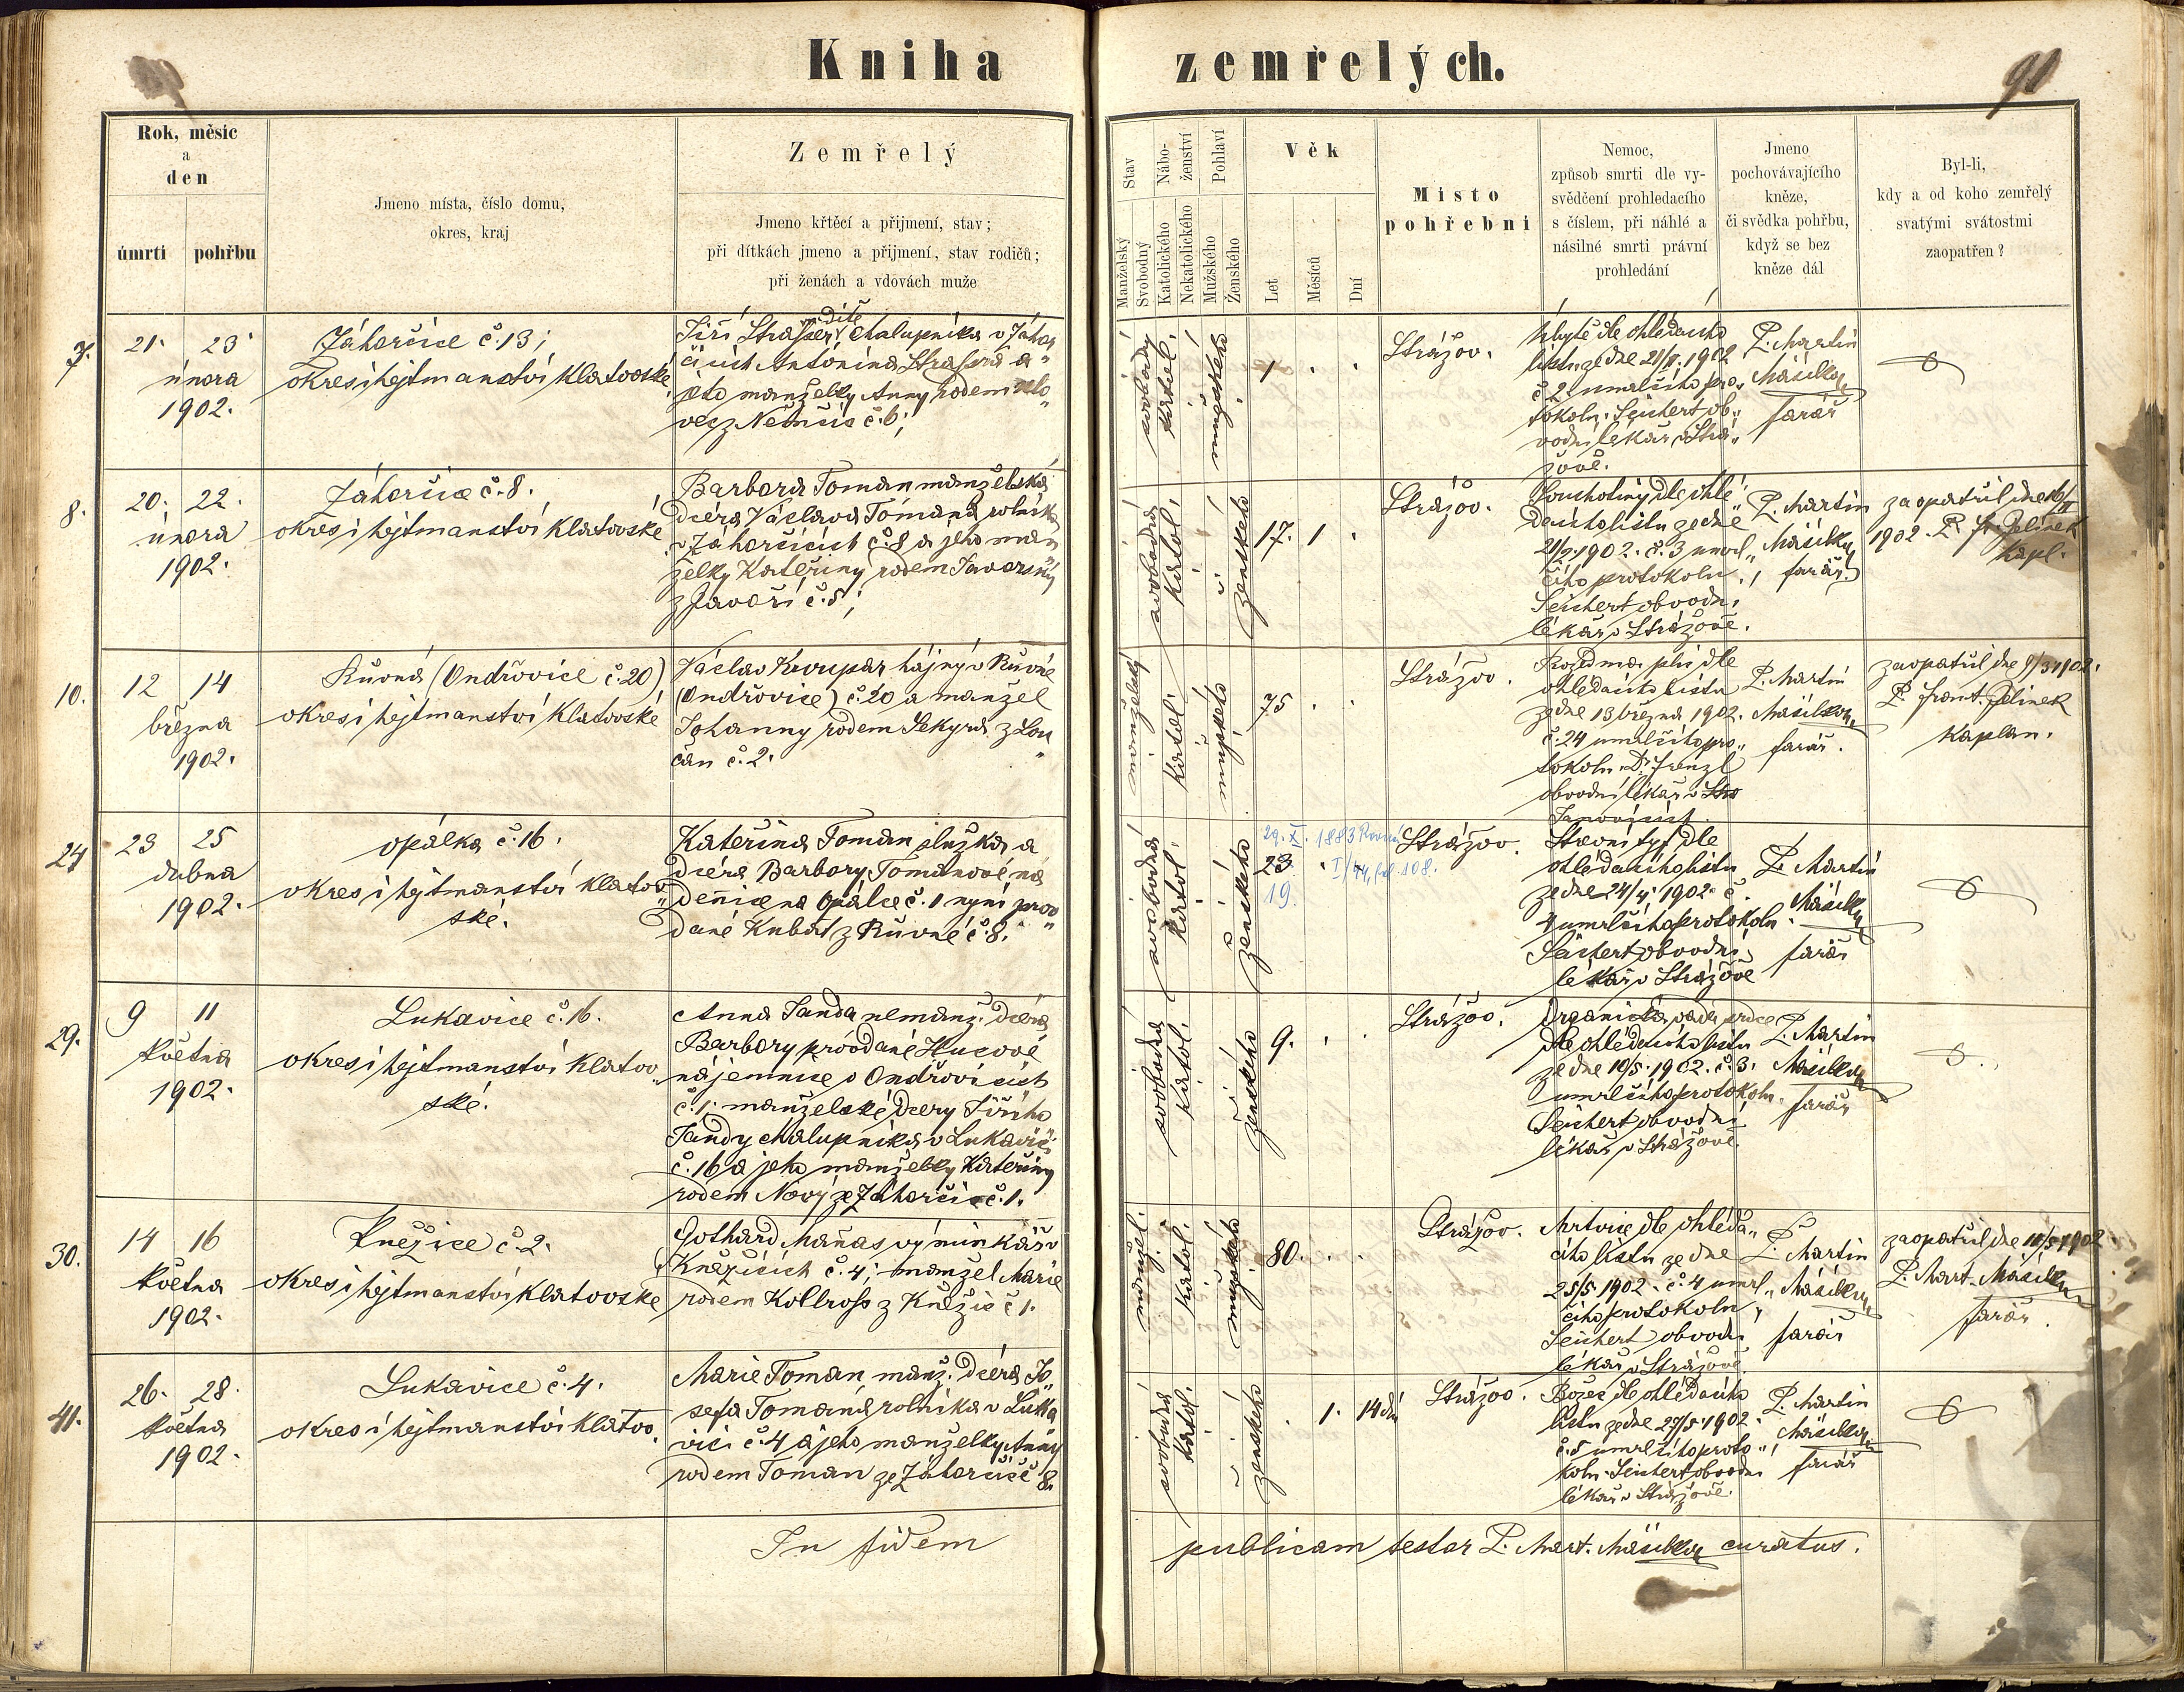 Kniha zemřelých.
91
Rok, měsíc
a
den
úmrtí
pohřbu
Jmeno místa, číslo domu,
okres, kraj
Zemřelý
Jmeno křtěcí a přijmení, stav;
při dítkách jmeno a přijmení, stav rodičů;
při ženách a vdovách muže
Stav
Manželský
Svobodný
Nábo-
ženství
Katolického
Nekatolického
Pohlaví
Mužského
Ženského
Věk
Let
Měsíců
Dní
Místo
pohřební
Nemoc,
způsob smrti dle vy-
svědčení prohledacího
s číslem, při náhlé a
násilné smrti právní
prohledání
Jmeno
pochovávajícího
kněze,
či svědka pohřbu,
když se bez
kněze dál
Byl-li,
kdy a od koho zemřelý
svatými svátostmi
zaopatřen?
7.
21. 23.
února
1902.
Záhorčice č. 13;
okres i hejtmanství Klatovské
dítě
Jiří chalupníka v Záhor„
čicích Antonína a
manželky Anny rodem
č. 6;
svobodný
katol.
mužského
1 . .
Strážov.
dle ohledacího
listu ze dne 21/II. 1902
č. 2 umrlčího pro„
tokolu. Seichert ob„
vodní lékař v Strá„
žově.
P. Martin
Másilko
farář
8.
20. 22.
února
1902.
Záhorčice č. 8.
okres i hejtmanství Klatovské
Barbora Toman manželská
dcera Václava Tomana rolníka
v Záhorčicích č. 8 a jeho man
želky Kateřiny rodem Javorský
z Javoří č. 5;
svobodná
katol.
ženského
17. 1 .
Strážov.
Souchotiny dle ohle„
dacího listu ze dne
21/2. 1902. č. 3 umrl„
čího protokolu.
Seichert obvodní
lékař v Strážově.
P. Martin
Másilko
farář.
zaopatřil dne 16/II
1902. P. Fr. Jelinek
kapl.
10.
12 14
března
1902.
Růvná (Ondřovice č. 20)
okres i hejtmanství Klatovské
Václav hajný v Růvné
(Ondřovice) č. 20 a manžel
Johanny rodem Sekyra z Lou
čan č. 2.
manželský
katol.
mužského
75 . .
Strážov.
Rozedma plic dle
ohledacího listu
ze dne 13 března 1902.
č. 24 umrlčího pro„
tokolu. Dr. Frenzl
obvodní lékař v
Janovicích.
P. Martin
Másilko
farář.
zaopatřil dne 9/3 1902.
P. Frant. Jelinek
kaplan.
24
23 25
dubna
1902.
Opálka č. 16.
okres i hejtmanství Klatov„
ské.
Kateřina Toman služka a
dcera Barbory Tomanové ná
denice na Opálce č. 1 nyní prov„
dané Kubát z Růvné č. 8.
svobodná
katol.
ženského
29. X. 1883 Rovná
I/44, fol. 108.
23 .
19.
Strážov.
Střevní tyf dle
ohledacího listu
ze dne 24/4. 1902 č.
4 umrlčího protokolu.
Seichert obvodní
lékař v Strážově
P. Martin
Másilko
farář
29.
9 11
května
1902.
Lukavice č. 16.
okres i hejtmanství Klatov„
ské.
Anna Janda nemanž. dcera
Barbory próvdané Hucové
nájemnice v Ondřovicích
č. 1; manželské dcery Jiřího
Jandy chalupníka v Lukavici
č. 16 a jeho manželky Kateřiny
rodem Nový ze Záhorčic č. 1.
svobodná
katol.
ženského
9. . .
Strážov.
Organická vada srdce
dle ohledacího listu
ze dne 10/5. 1902. č. 3.
umrlčího protokolu.
Seichert obvodní
lékař v Strážově.
P. Martin
Másilko
farář
30.
14 16
května
1902.
Kněžice č. 2.
okres i hejtmanství Klatovské
Gothard Maňas výminkář v
Kněžicích č. 4; manžel Marie
rodem Kollross z Kněžic č 1.
manžel.
katol.
mužského
80. . .
Strážov.
Mrtvice dle ohleda„
cího listu ze dne
25/5. 1902. č. 4 umrl„
čího protokolu
Seichert obvodní
lékař v Strážově
P. Martin
Másilko
farář
zaopatřil dne 11/5 1902
P. Mart. Másilko
farář.
41.
26. 28.
května
1902.
Lukavice č. 4.
okres i hejtmanství Klatov.
Marie Toman manž. dcera Jo„
sefa Tomana rolníka v Luka
vici č. 4 a jeho manželky Anny
rodem Toman ze Záhorčic č 8.
svobodná
katol.
ženského
. 1. 14 dní
Strážov.
Božec dle ohledacího
listu ze dne 27/5. 1902.
č. 5 umrlčího proto„
kolu. Seichert obvodní
lékař v Strážově.
P. Martin
Másilko
farář
In fidem publicam testor P. Mart. Másilko curatus.